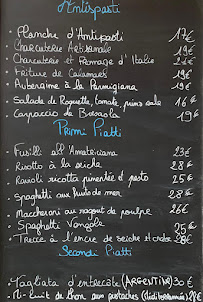 Antispasti
- Planche d'Antipasti 17€
- Charcuterie Artisanale 19€
- Charcuterie et Fromage d'Italie 24€
- Friture de Calamars 19€
- Aubergine à la Parmigiana 19€
- Salade de Roquette, tomate, pino salé 16€
- Carpaccio de Bresaola 19€
Primi Piatti
- Fusilli all Amatriciana 23€
- Risotto à la seiche 28€
- Ravioli ricotta pimentée et pesto 25€
- Spaghetti aux fruits de mer 28€
- Maccheroni au ragout de poulpe 26€
- Spaghetti Vongole 25€
- Trecce à l'encre de seiche et crabe 28€
Secondi Piatti
- Tagliata d'entrecôte (ARGENTINE) 30€
- Mi-cuit de thon aux pistaches (Méditerranée) 28€